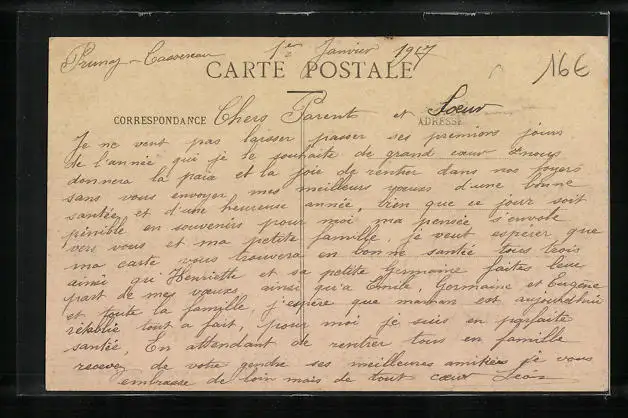 Prunay-Cassereau 1er Janvier 1917
CARTE POSTALE
16€
CORRESPONDANCE Chers Parents et Soeur
ADRESSE
Je ne veut pas laisser passer ses premiers jours
de l'année qui je le souhaite de grand cœur nous
donnera la paix et la joie de rentrer dans nos foyers
sans vous envoyer mes meilleurs vœux d'une bonne
santée et d'une heureuse année, bien que ce jour soit
pénible en souvenirs pour moi ma pensée s'envole
vers vous et ma petite famille, je veut espérer que
ma carte vous trouvera en bonne santée tous trois
ainsi qu'Henriette et sa petite Germaine faites leur
part de mes vœux ainsi qu'a Emile, Germaine et Eugène
et toute la famille, j'espère que maman est aujourd'hui
rétablie tout a fait, pour moi je suis en parfaite
santée, En attendant de rentrer tous en famille
recevez de votre gendre ses meilleures amitiées je vous
embrasse de loin mais de tout cœur Léon